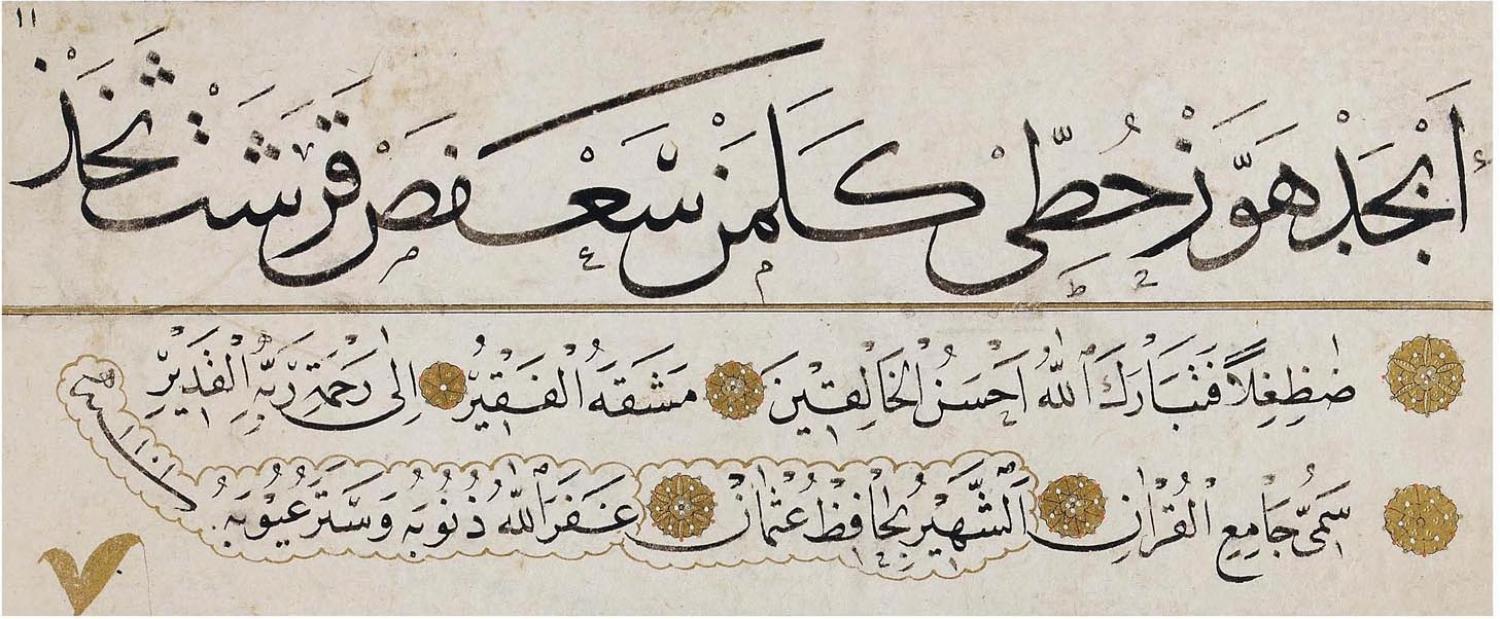 ١١
أَبْجَدْ هَوَّزْ حُطِّى كَلَمَنْ سَعْفَصْ قَرَشَتْ ثَخَذْ
ضَظِغِلاً فَتَبَارَكَ اللهُ اَحْسَنُ الْخَالِقِينَ مَشَقَهُ الْفَقِيرُ اِلٰى رَحْمَةِ رَبِّهِ الْقَدِيرِ
سَمِىُّ جَامِعِ الْقُرْاٰنِ اَلشَّهِيرُ بِالْحَافِظْ عُثْمَانْ غَفَرَ اللهُ ذُنُوبَهُ وَسَتَرَ عُيُوبَهُ